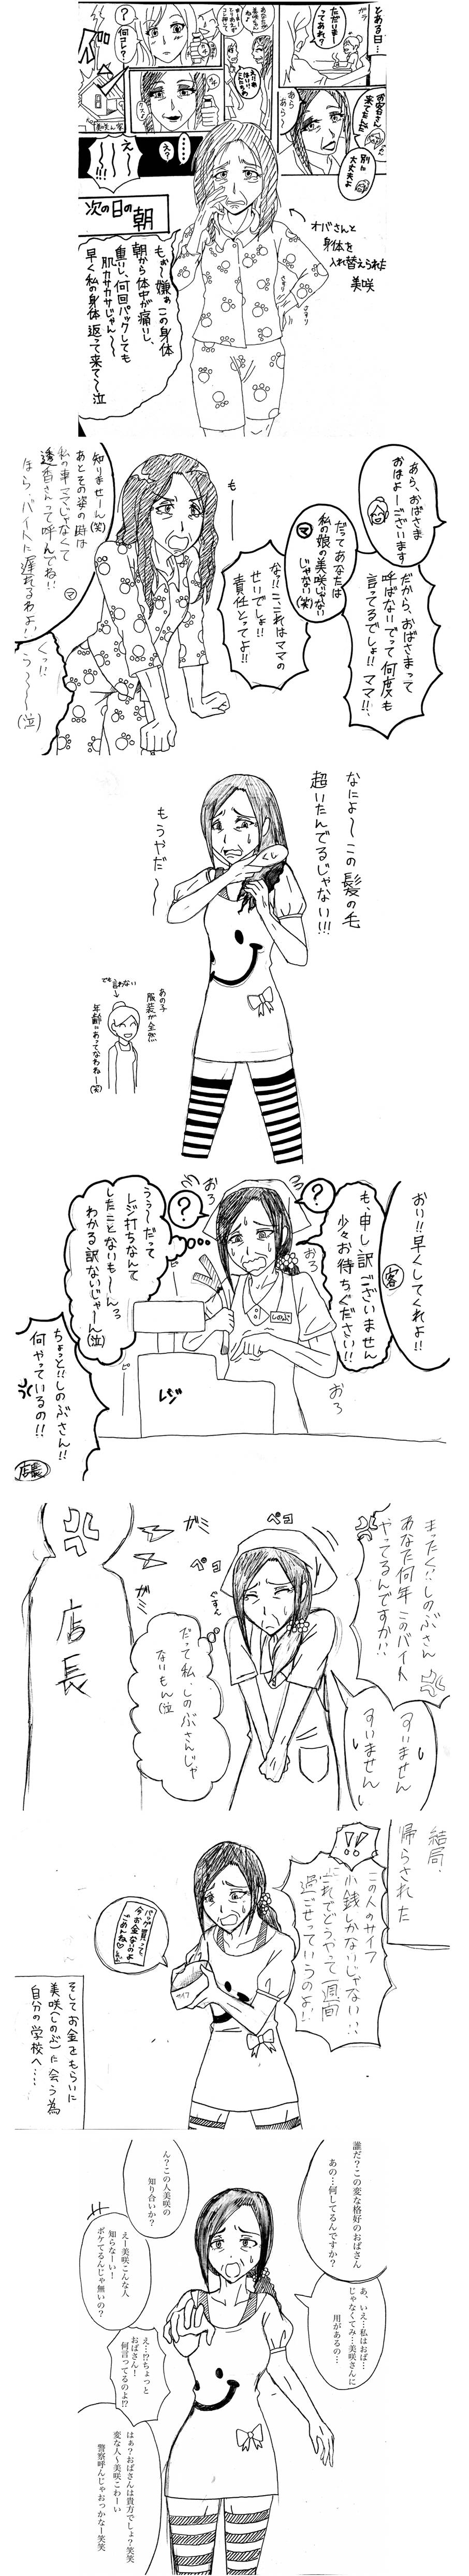 とある日…
ただいま
ってあれ？
お客さん
来てたんだ
別に
大丈夫よ
あら
あら
？
何コレ？
え？
え〜
〜!!!
次の日の朝
オバさんと
身体を
入れ替えられた
美咲
さすり
さすり
もぉ〜嫌ぁこの身体
朝から体中が痛いし、
重いし、何回パックしても
肌カサカサじゃん〜〜
早く私の身体返って来て〜泣
あら、おばさま
おはよーございます
だから、おばさまって
呼ばないでって何度も
言ってるでしょ!!ママ!!、
だってあなたは
私の娘の美咲じゃない
じゃない(笑)
マ
な!!こ、これはママの
せいでしょ!!
責任とってよ!!
もー
知りませーん(笑)
あとその姿の時は
私の事ママじゃなくて
透香さんって呼んでね!!
ほら、バイトに遅れるわよ！
マ
くっ!!
う〜〜〜
(泣)
なによ〜この髪の毛
超いたんでるじゃない!!!
もうやだ〜
あの子
服装が全然
年齢にあってなわねー(笑)
でも言わない
おり!!早くしてくれよ!!
客
も、申し訳ございません
少々お待ちください!!
おろ
おろ
おろ
？
？
うぅ〜だって
レジ打ちなんて
したことないも〜んっ
わかる訳ないじゃーん
(泣)
しのぶ
レジ
ピ
ピ
ちょっと!!しのぶさん!!
何やっているの!!
店長
まったく!!しのぶさん
あなた何年このバイト
やってるんですか!!
すいません
すいません
ペコ
ペコ
ガミ
ガミ
ぐすん
だって私、しのぶさんじゃ
ないもん(泣
店長
結局、
帰らされた
!!
この人のサイフ
小銭しかないじゃない!!
これでどうやって一週間
過ごせっていうのよ!!
バッグ買って
今お金ないのよ
ごめんね♡
サイフ
そしてお金をもらいに
美咲(しのぶ)に会う為
自分の学校へ…
誰だ？この変な格好のおばさん
あの…何してるんですか？
あ、いえ…私はおば…
じゃなくてみ…美咲さんに
用があるの…
ん？この人美咲の
知り合いか？
えー美咲こんな人
知らなーい！
ボケてるんじゃ無いの？
え…!?ちょっと
おばさん！
何言ってるのよ!?
はぁ？おばさんは貴方でしょ？笑笑
変な人〜美咲こわーい
警察呼んじゃおっかなー笑笑